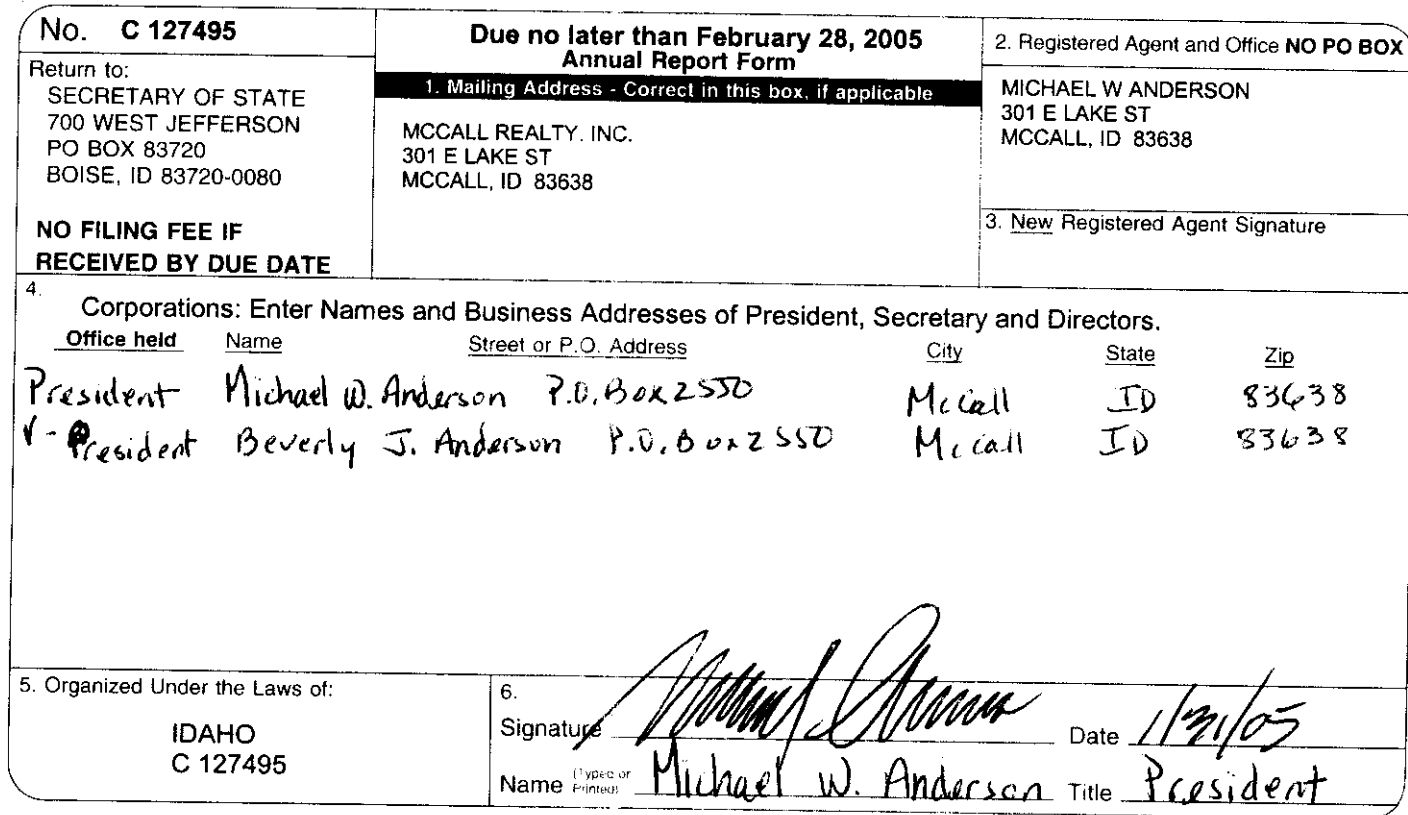 No. C 127495
Return to:
SECRETARY OF STATE
700 WEST JEFFERSON
PO BOX 83720
BOISE, ID 83720-0080
NO FILING FEE IF
RECEIVED BY DUE DATE
Due no later than February 28, 2005
Annual Report Form
1. Mailing Address - Correct in this box, if applicable
MCCALL REALTY. INC.
301 E LAKE ST
MCCALL, ID 83638
2. Registered Agent and Office NO PO BOX
MICHAEL W ANDERSON
301 E LAKE ST
MCCALL, ID 83638
3. New Registered Agent Signature
4.
Corporations: Enter Names and Business Addresses of President, Secretary and Directors.
Office held Name Street or P.O. Address City State Zip
President Michael W. Anderson P.O. Box 2550 McCall ID 83638
V - President Beverly J. Anderson P.O. Box 2550 McCall ID 83638
5. Organized Under the Laws of:
IDAHO
C 127495
6.
Signature Date 1/31/05
Name (Typed or Printed) Michael W. Anderson Title President